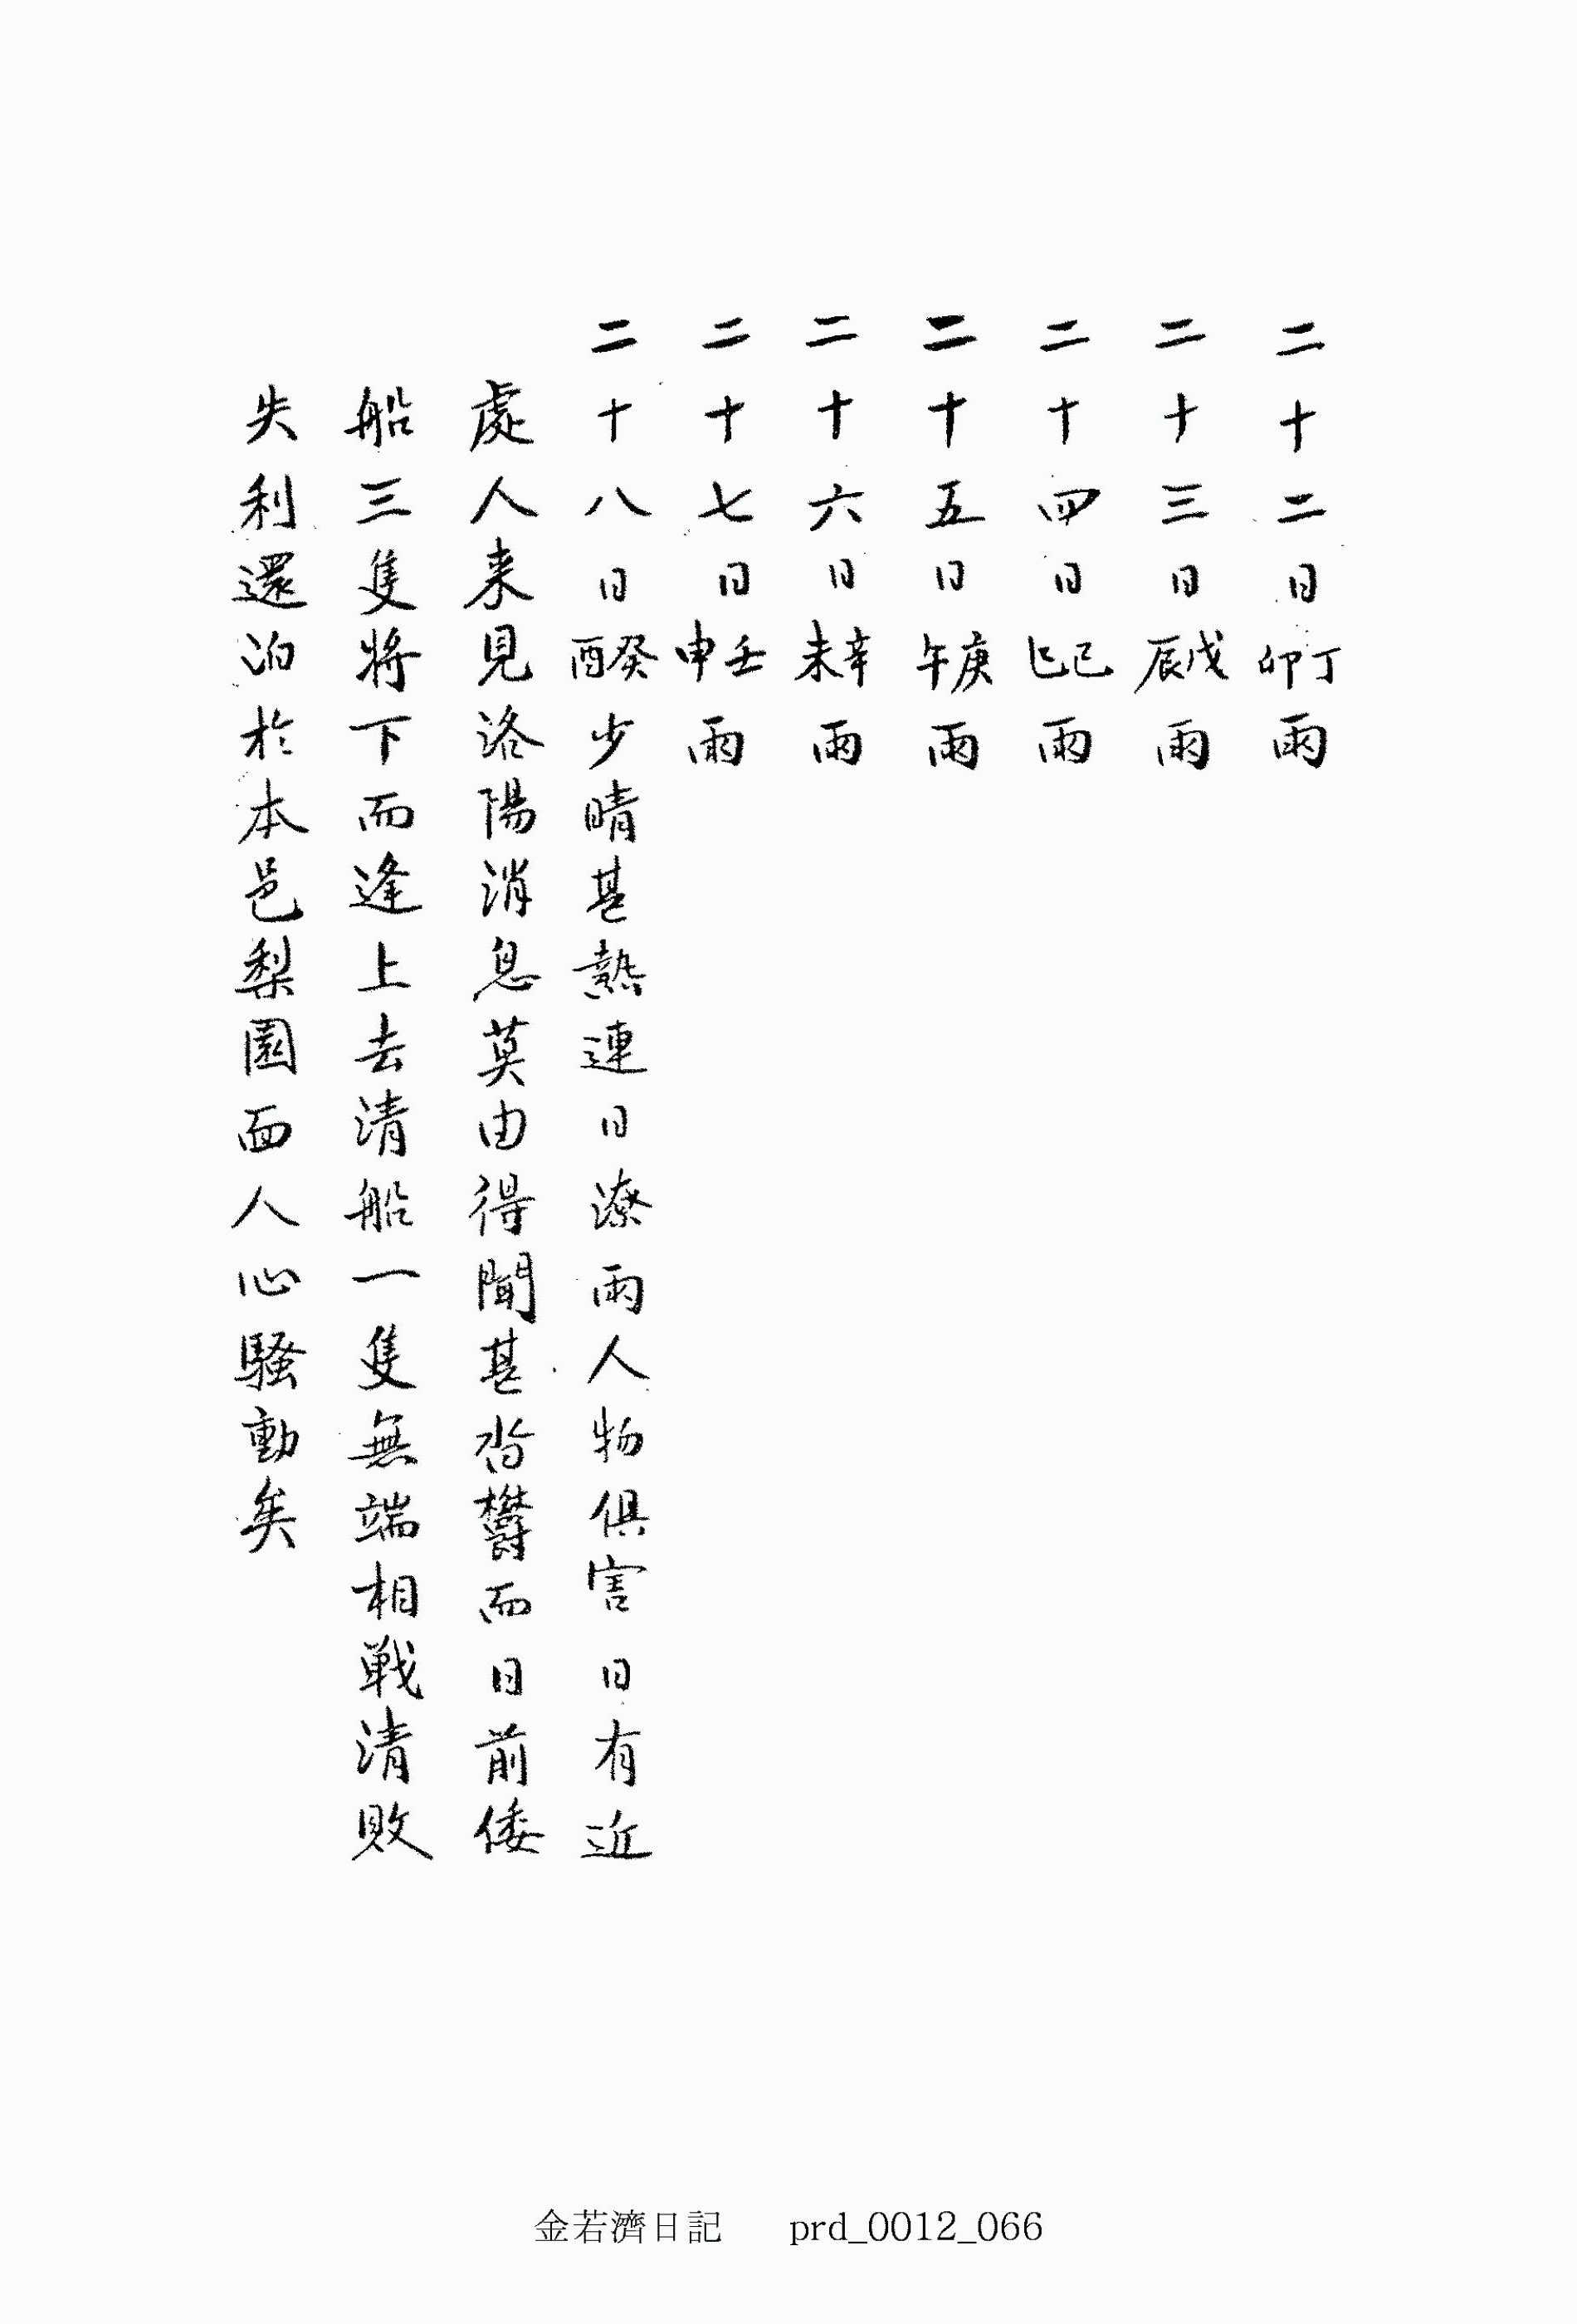 二十二日丁卯雨
二十三日戊辰雨
二十四日己巳雨
二十五日庚午雨
二十六日辛未雨
二十七日壬申雨
二十八日癸酉少晴甚熱連日潦雨人物俱害日有近
處人来見洛陽消息莫由得聞甚沓欝而日前倭
船三隻將下而逢上去清船一隻無端相戦清敗
失利還泊於本邑梨園面人心騷動矣
金若濟日記 prd_0012_066